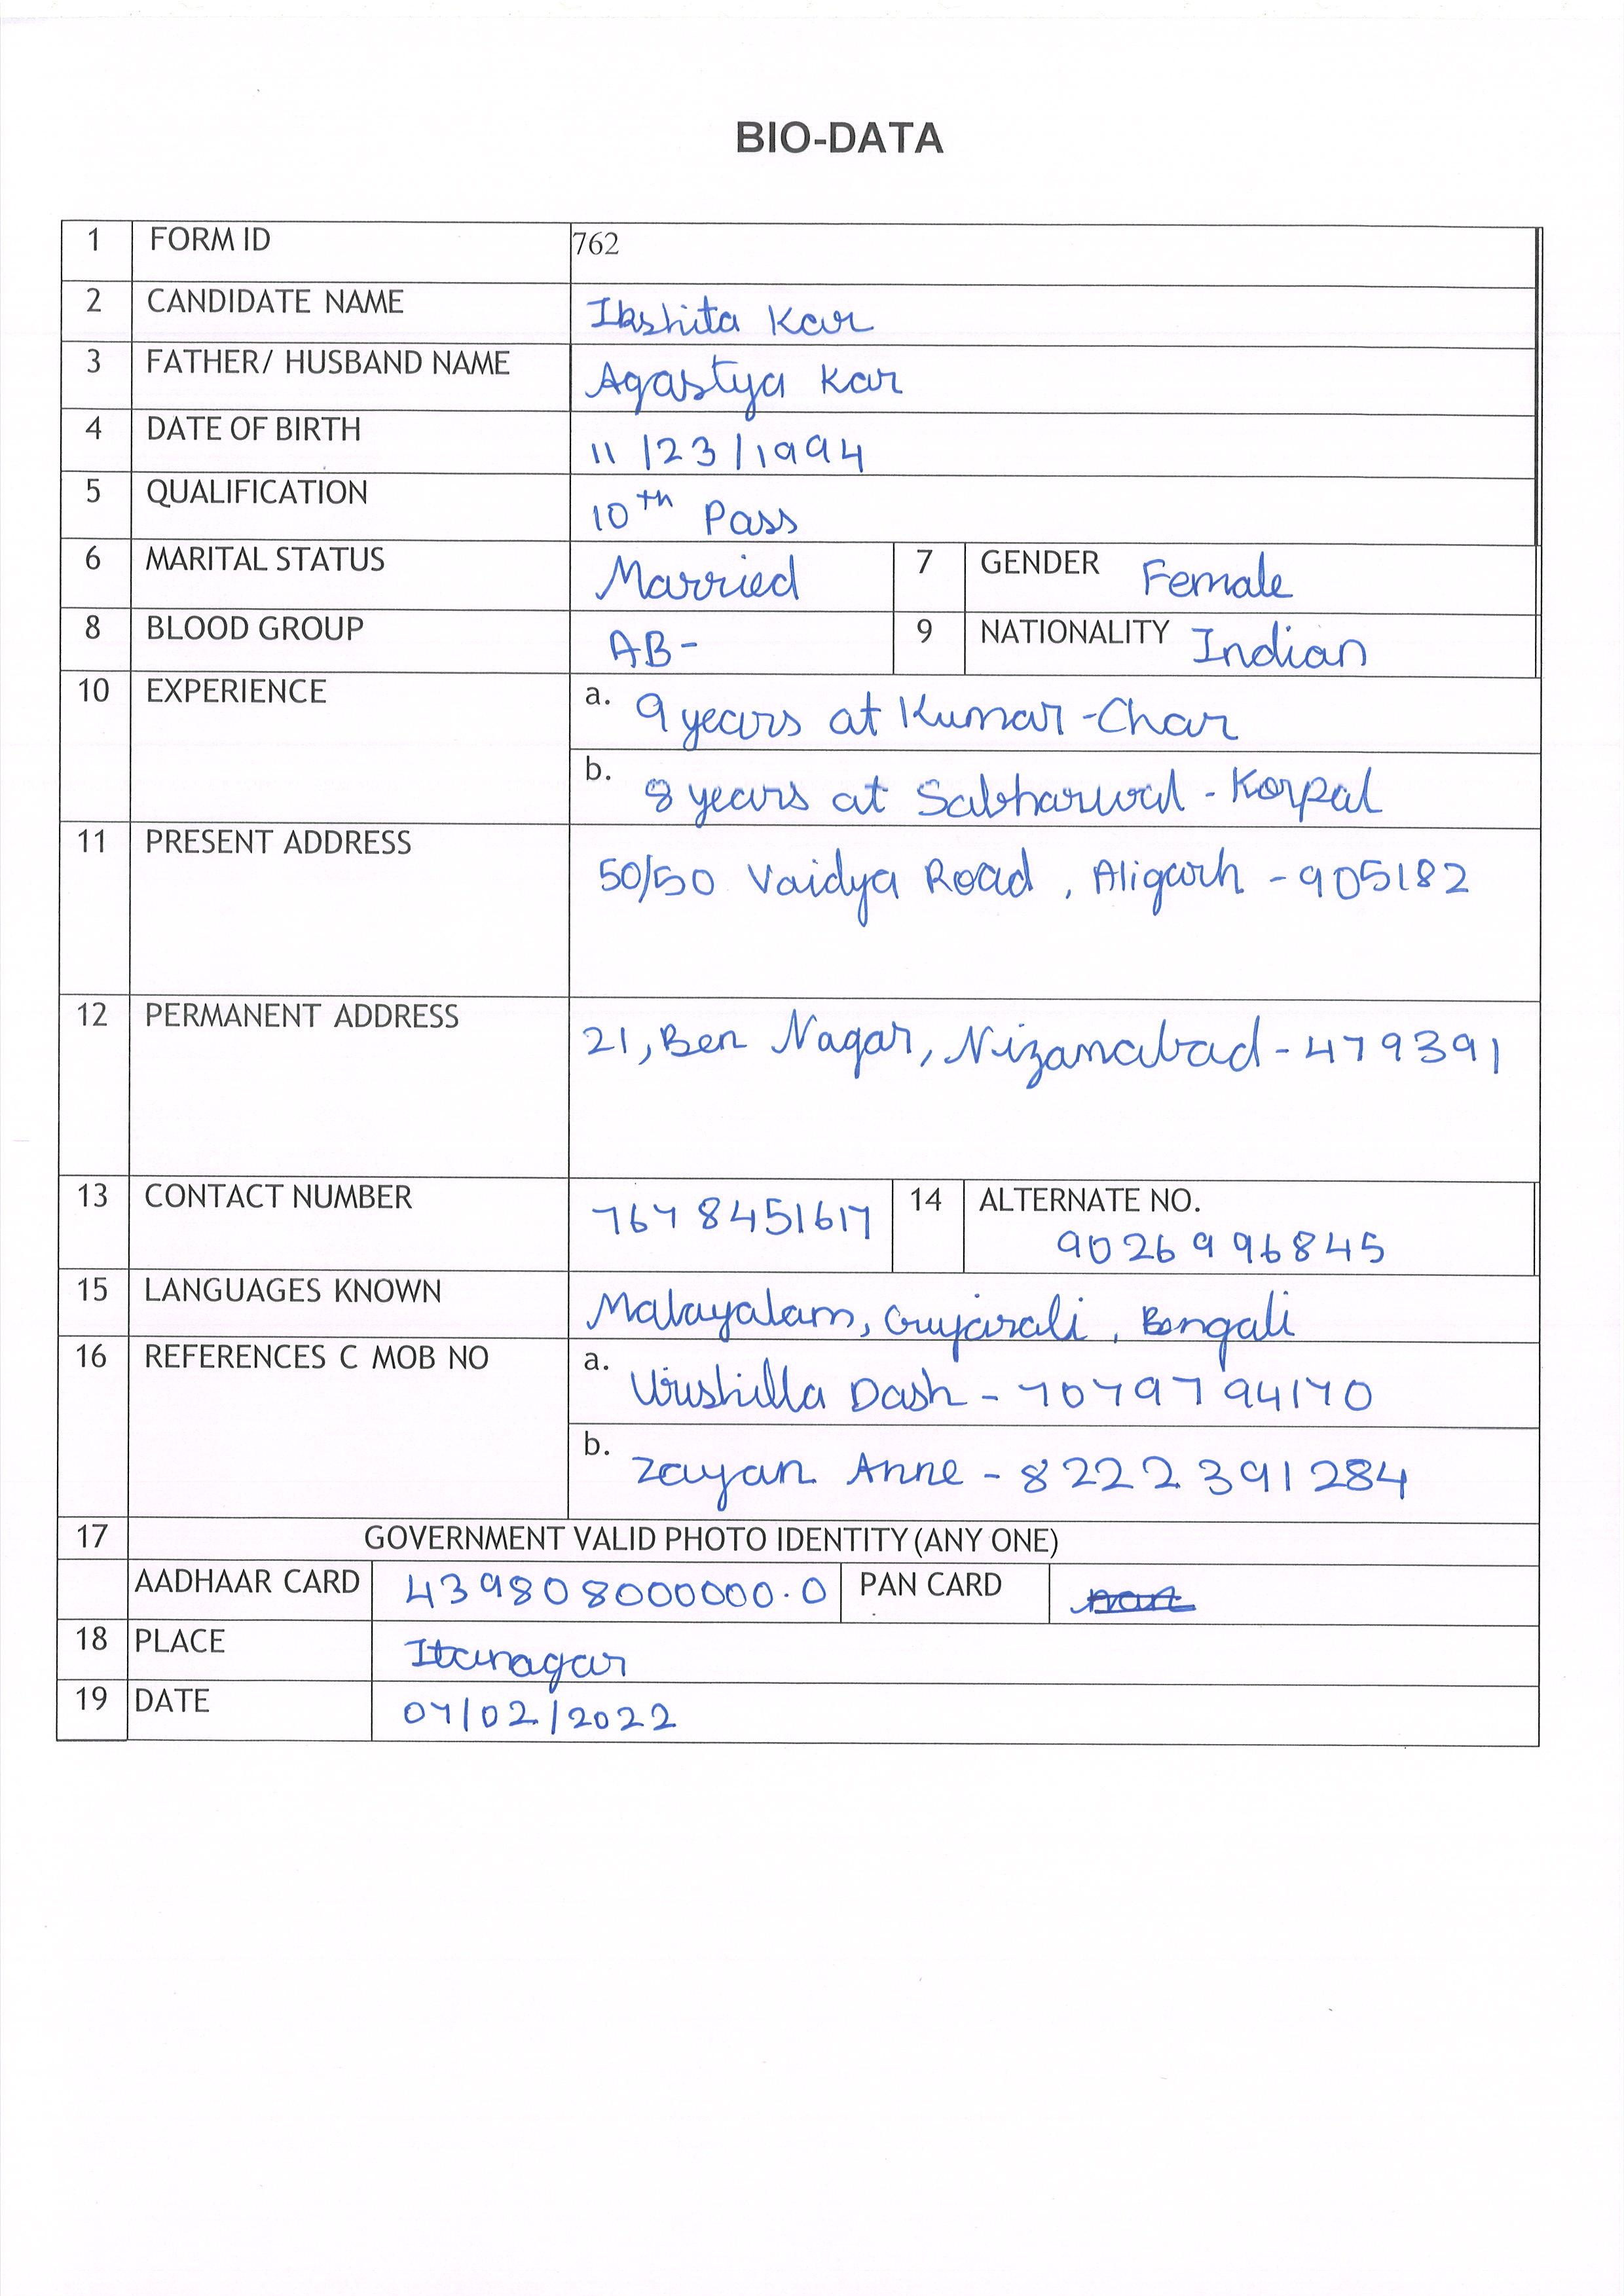 BIO-DATA
1 FORM ID 762
2 CANDIDATE NAME Ikshita Kar
3 FATHER/ HUSBAND NAME Agastya Kar
4 DATE OF BIRTH 11/23/1994
5 QUALIFICATION 10th Pass
6 MARITAL STATUS Married 7 GENDER Female
8 BLOOD GROUP AB- 9 NATIONALITY Indian
10 EXPERIENCE a. 9 years at Kumar-Char
b. 8 years at Sabharwal-Korpal
11 PRESENT ADDRESS 50/50 Vaidya Road, Aligarh - 905182
12 PERMANENT ADDRESS 21, Ben Nagar, Nizamabad - 479391
13 CONTACT NUMBER 7678451617 14 ALTERNATE NO.
9026996845
15 LANGUAGES KNOWN Malayalam, Gujarali, Bengali
16 REFERENCES C MOB NO a. Urishilla Dash - 7079794170
b. Zayan Anne - 8222391284
17 GOVERNMENT VALID PHOTO IDENTITY (ANY ONE)
AADHAAR CARD 439808000000.0 PAN CARD
18 PLACE Itanagar
19 DATE 07/02/2022